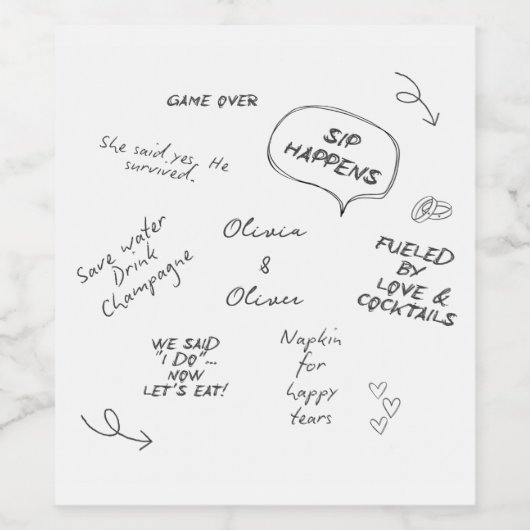 GAME OVER
SIP
HAPPENS
She said yes. He
survived.
Save water
Drink
Champagne
Olivia
&
Oliver
FUELED
BY
LOVE &
COCKTAILS
WE SAID
"I DO"...
NOW
LET'S EAT!
Napkin
for
happy
tears